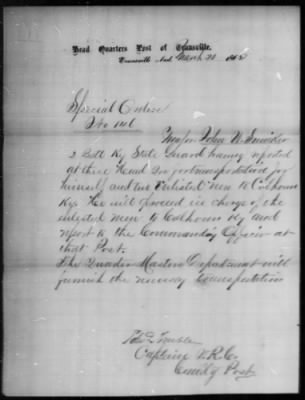 Head Quarters Post of Evansville.
Evansville Ind. March 20 1865
Special Orders
No 146
Major John W.
2 Batt Ky State Guard having reported
at these Head for transportation for
himself and Enlisted men to Calhoun
Ky. He will proceed in charge of the
enlisted men to Calhoun Ky and
report to the Commanding Officer at
that Post.
The Quarter Masters Department will
furnish the necessary transportation
Captain V.R.C.
Comdg Post